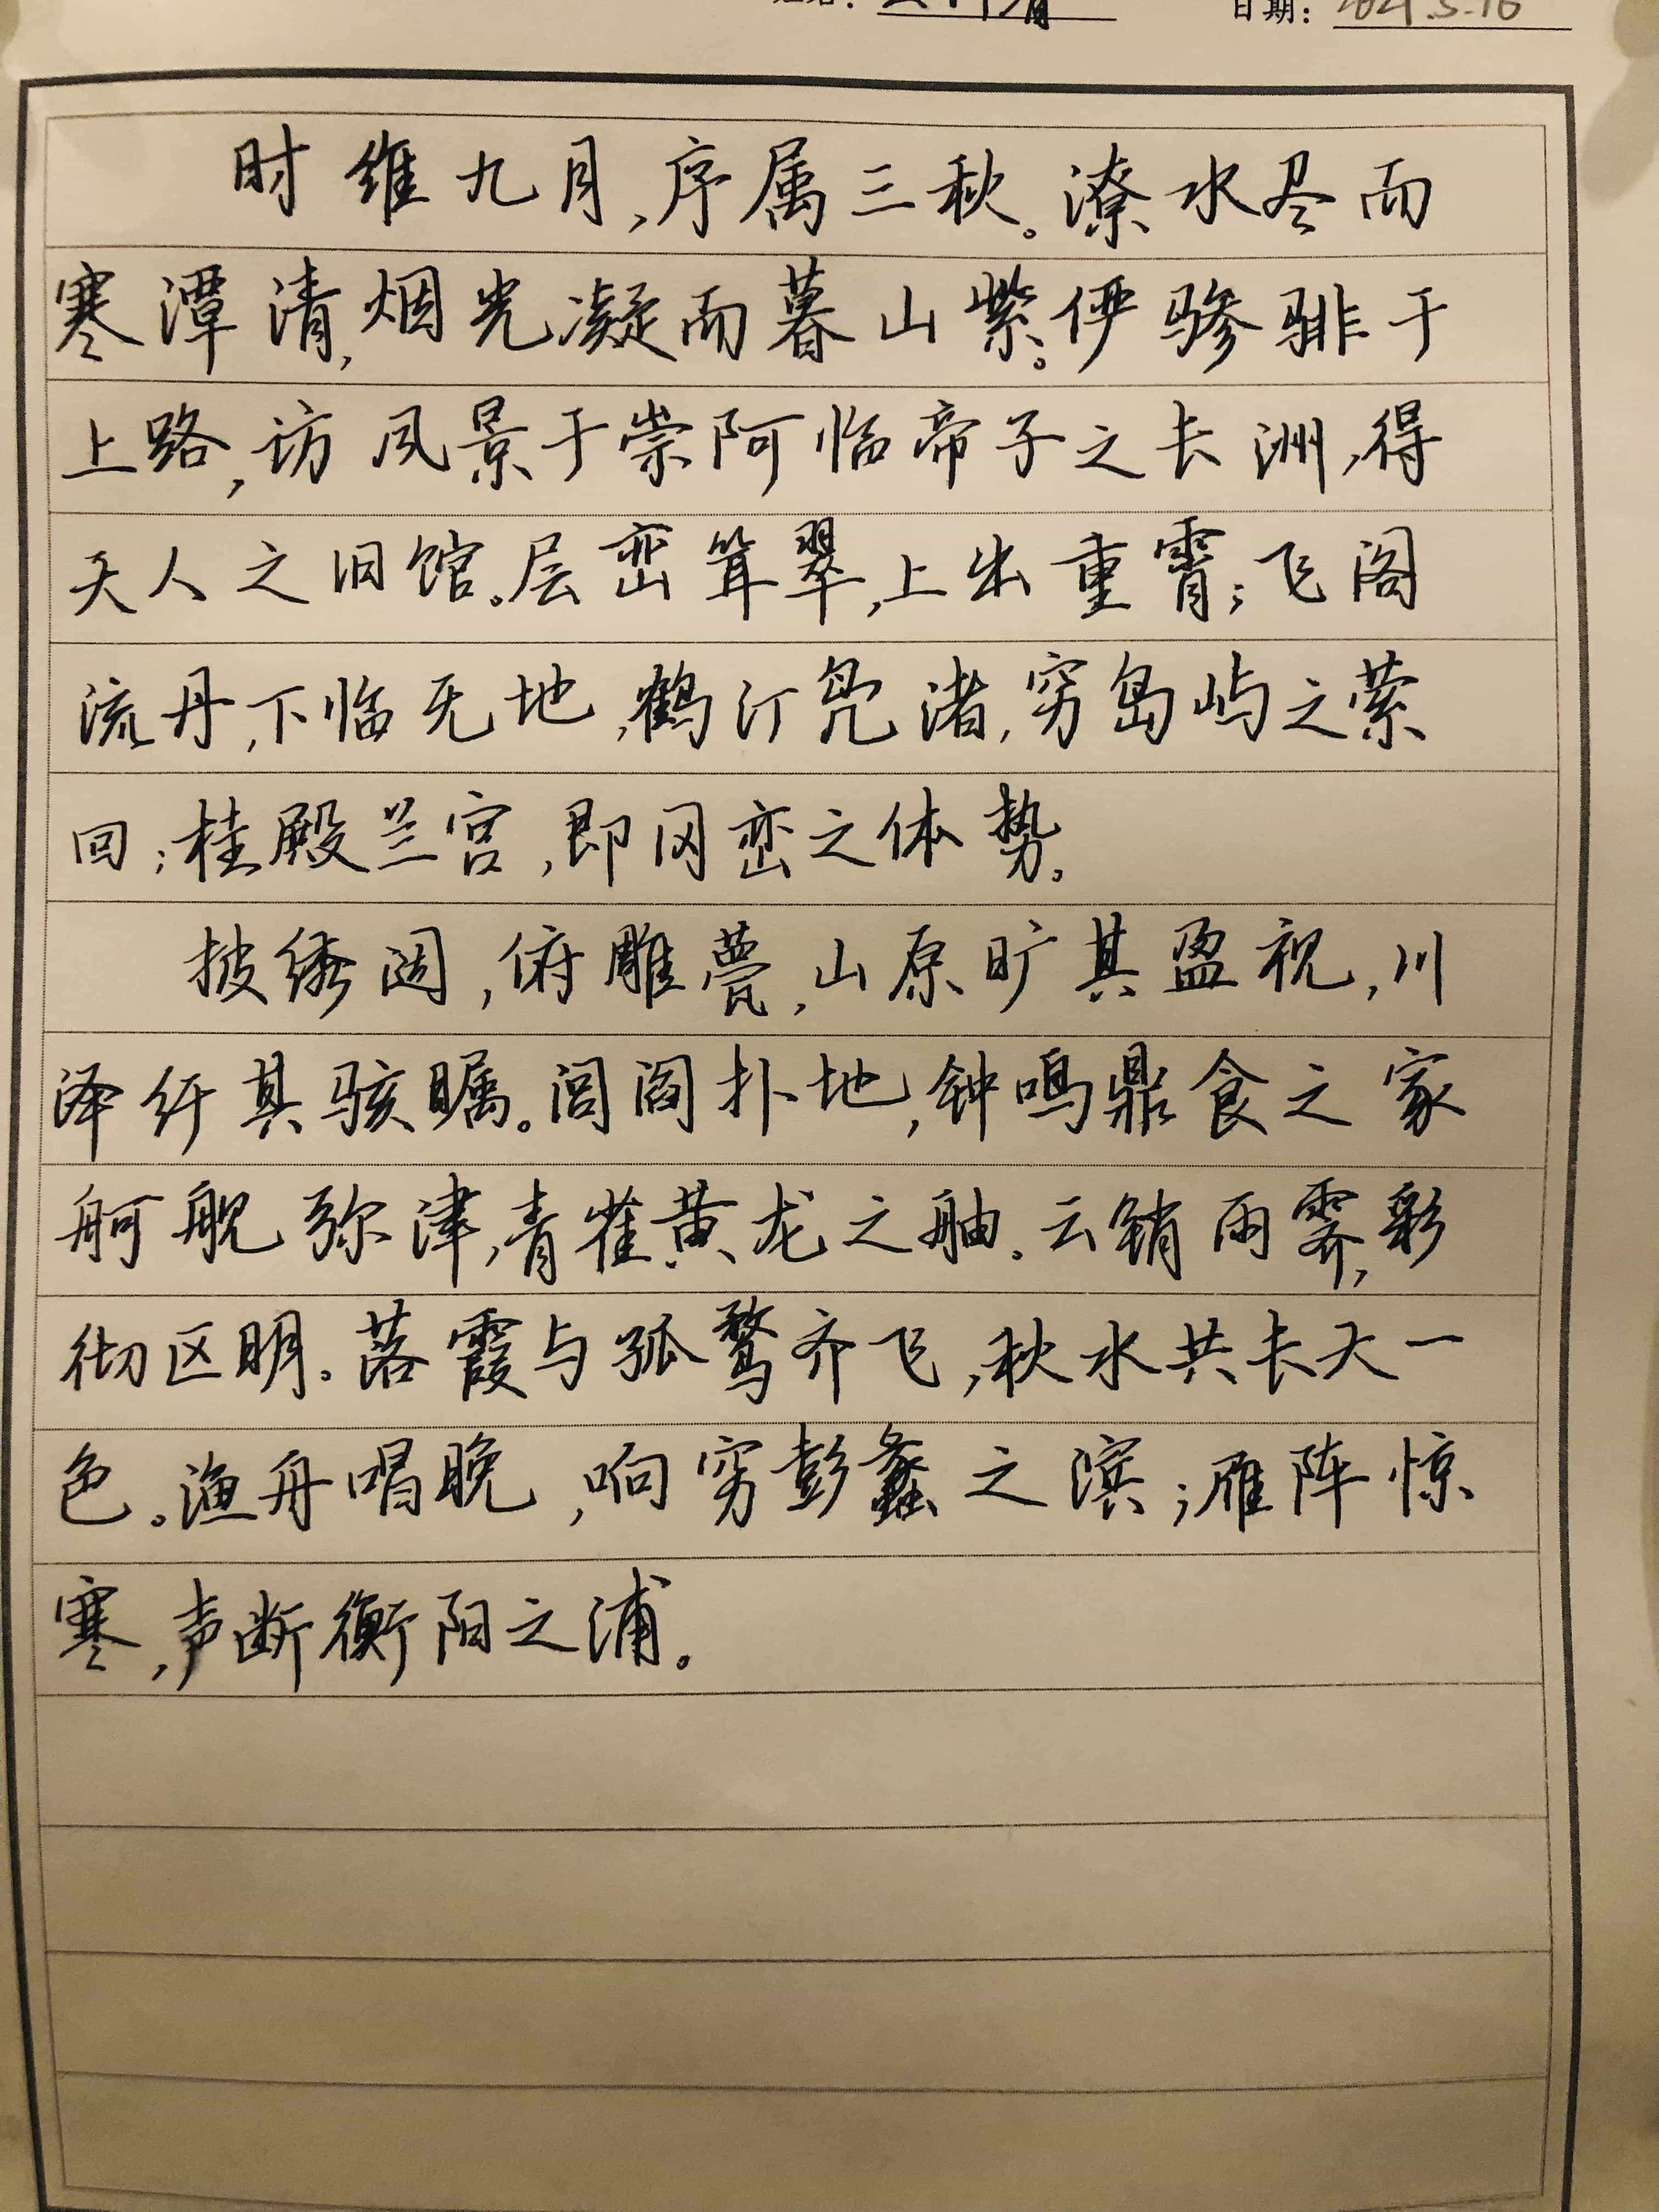 日期：2021.5.16
时维九月，序属三秋。潦水尽而
寒潭清，烟光凝而暮山紫。伊骖騑于
上路，访风景于崇阿临帝子之长洲，得
天人之旧馆。层峦耸翠，上出重霄；飞阁
流丹，下临无地，鹤汀凫渚，穷岛屿之萦
回；桂殿兰宫，即冈峦之体势。
披绣闼，俯雕甍，山原旷其盈视，川
泽纡其骇瞩。闾阎扑地，钟鸣鼎食之家
舸舰弥津，青雀黄龙之舳。云销雨霁，彩
彻区明。落霞与孤鹜齐飞，秋水共长天一
色。渔舟唱晚，响穷彭蠡之滨；雁阵惊
寒，声断衡阳之浦。